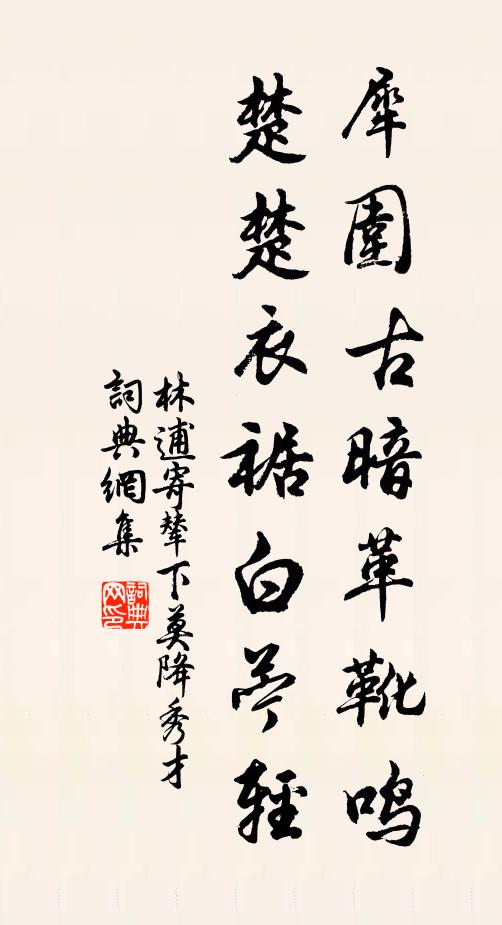 犀圍古暗革靴鳴
楚楚衣裾白苧輕
林逋寄輦下莫降秀才
詞典網集
詞典网印